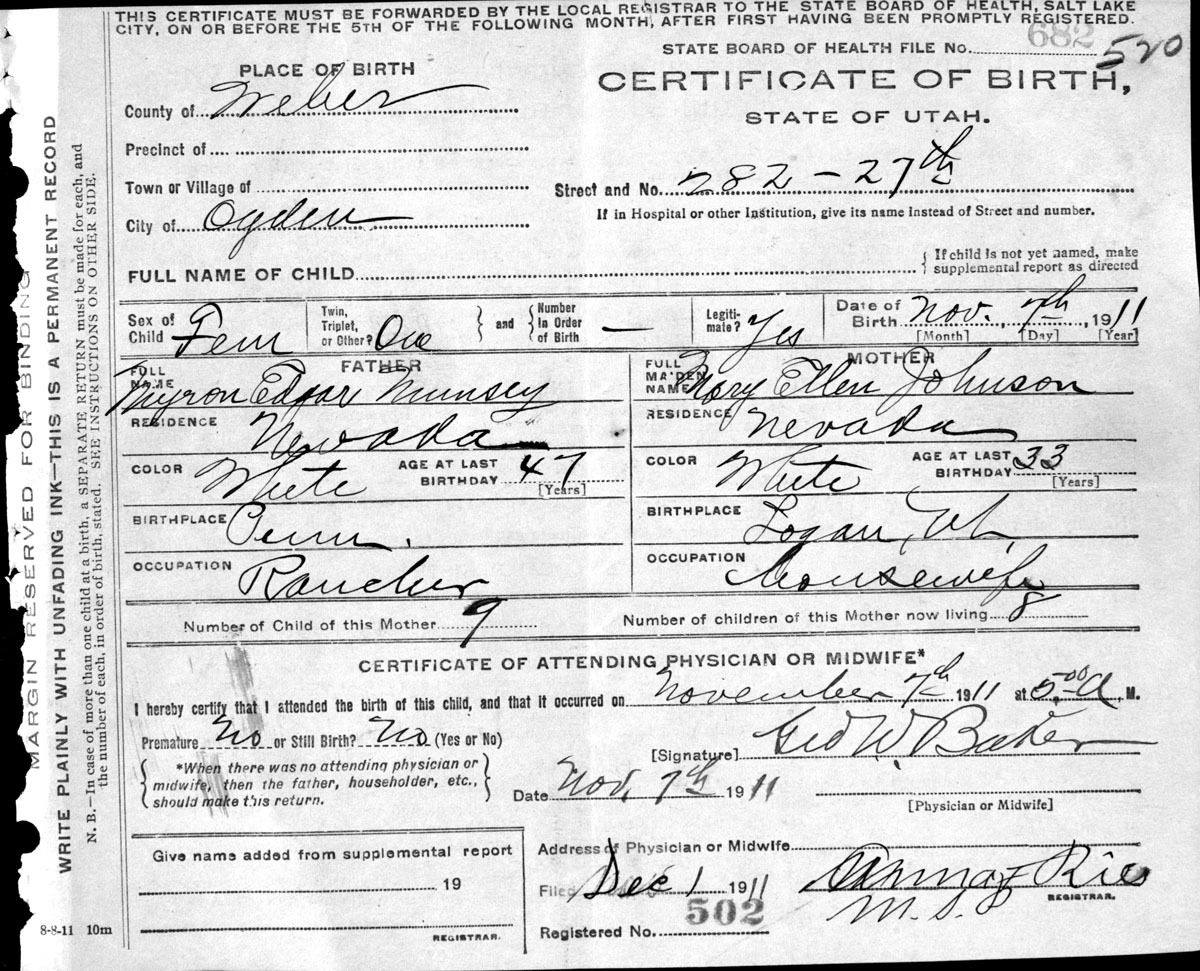 THIS CERTIFICATE MUST BE FORWARDED BY THE LOCAL REGISTRAR TO THE STATE BOARD OF HEALTH, SALT LAKE
CITY, ON OR BEFORE THE 5TH OF THE FOLLOWING MONTH, AFTER FIRST HAVING BEEN PROMPTLY REGISTERED.
STATE BOARD OF HEALTH FILE No. 682 520
PLACE OF BIRTH
CERTIFICATE OF BIRTH,
STATE OF UTAH.
County of Weber
Precinct of
Town or Village of
Street and No. 282 - 27th
City of Ogden
If in Hospital or other Institution, give its name instead of Street and number.
FULL NAME OF CHILD
{ If child is not yet named, make
supplemental report as directed
Sex of Child Fem
Twin, Triplet, or Other? One
} and { Number In Order of Birth —
Legitimate? Yes
Date of Birth Nov. 7th, 1911
[Month] [Day] [Year]
FATHER
FULL NAME Myron Edgar Munsey
RESIDENCE Nevada
COLOR White AGE AT LAST BIRTHDAY 47
[Years]
BIRTHPLACE Penn.
OCCUPATION Rancher
MOTHER
FULL MAIDEN NAME Mary Ellen Johnson
RESIDENCE Nevada
COLOR White AGE AT LAST BIRTHDAY 33
[Years]
BIRTHPLACE Logan, Ut.
OCCUPATION Housewife
Number of Child of this Mother 9 Number of children of this Mother now living 8
CERTIFICATE OF ATTENDING PHYSICIAN OR MIDWIFE*
I hereby certify that I attended the birth of this child, and that it occurred on November 7th 1911 at 5.00 A. M.
Premature No or Still Birth? No (Yes or No)
[Signature] Geo W. Baker
*When there was no attending physician or
midwife, then the father, householder, etc.,
should make this return.
Date Nov. 7th 1911
[Physician or Midwife]
Give name added from supplemental report
19
REGISTRAR.
Address of Physician or Midwife
Filed Dec 1 1911
REGISTRAR.
502
Registered No.
8-8-11 10m
MARGIN RESERVED FOR BINDING
WRITE PLAINLY WITH UNFADING INK—THIS IS A PERMANENT RECORD
N. B.—In case of more than one child at a birth, a SEPARATE RETURN must be made for each, and
the number of each, in order of birth, stated. SEE INSTRUCTIONS ON OTHER SIDE.